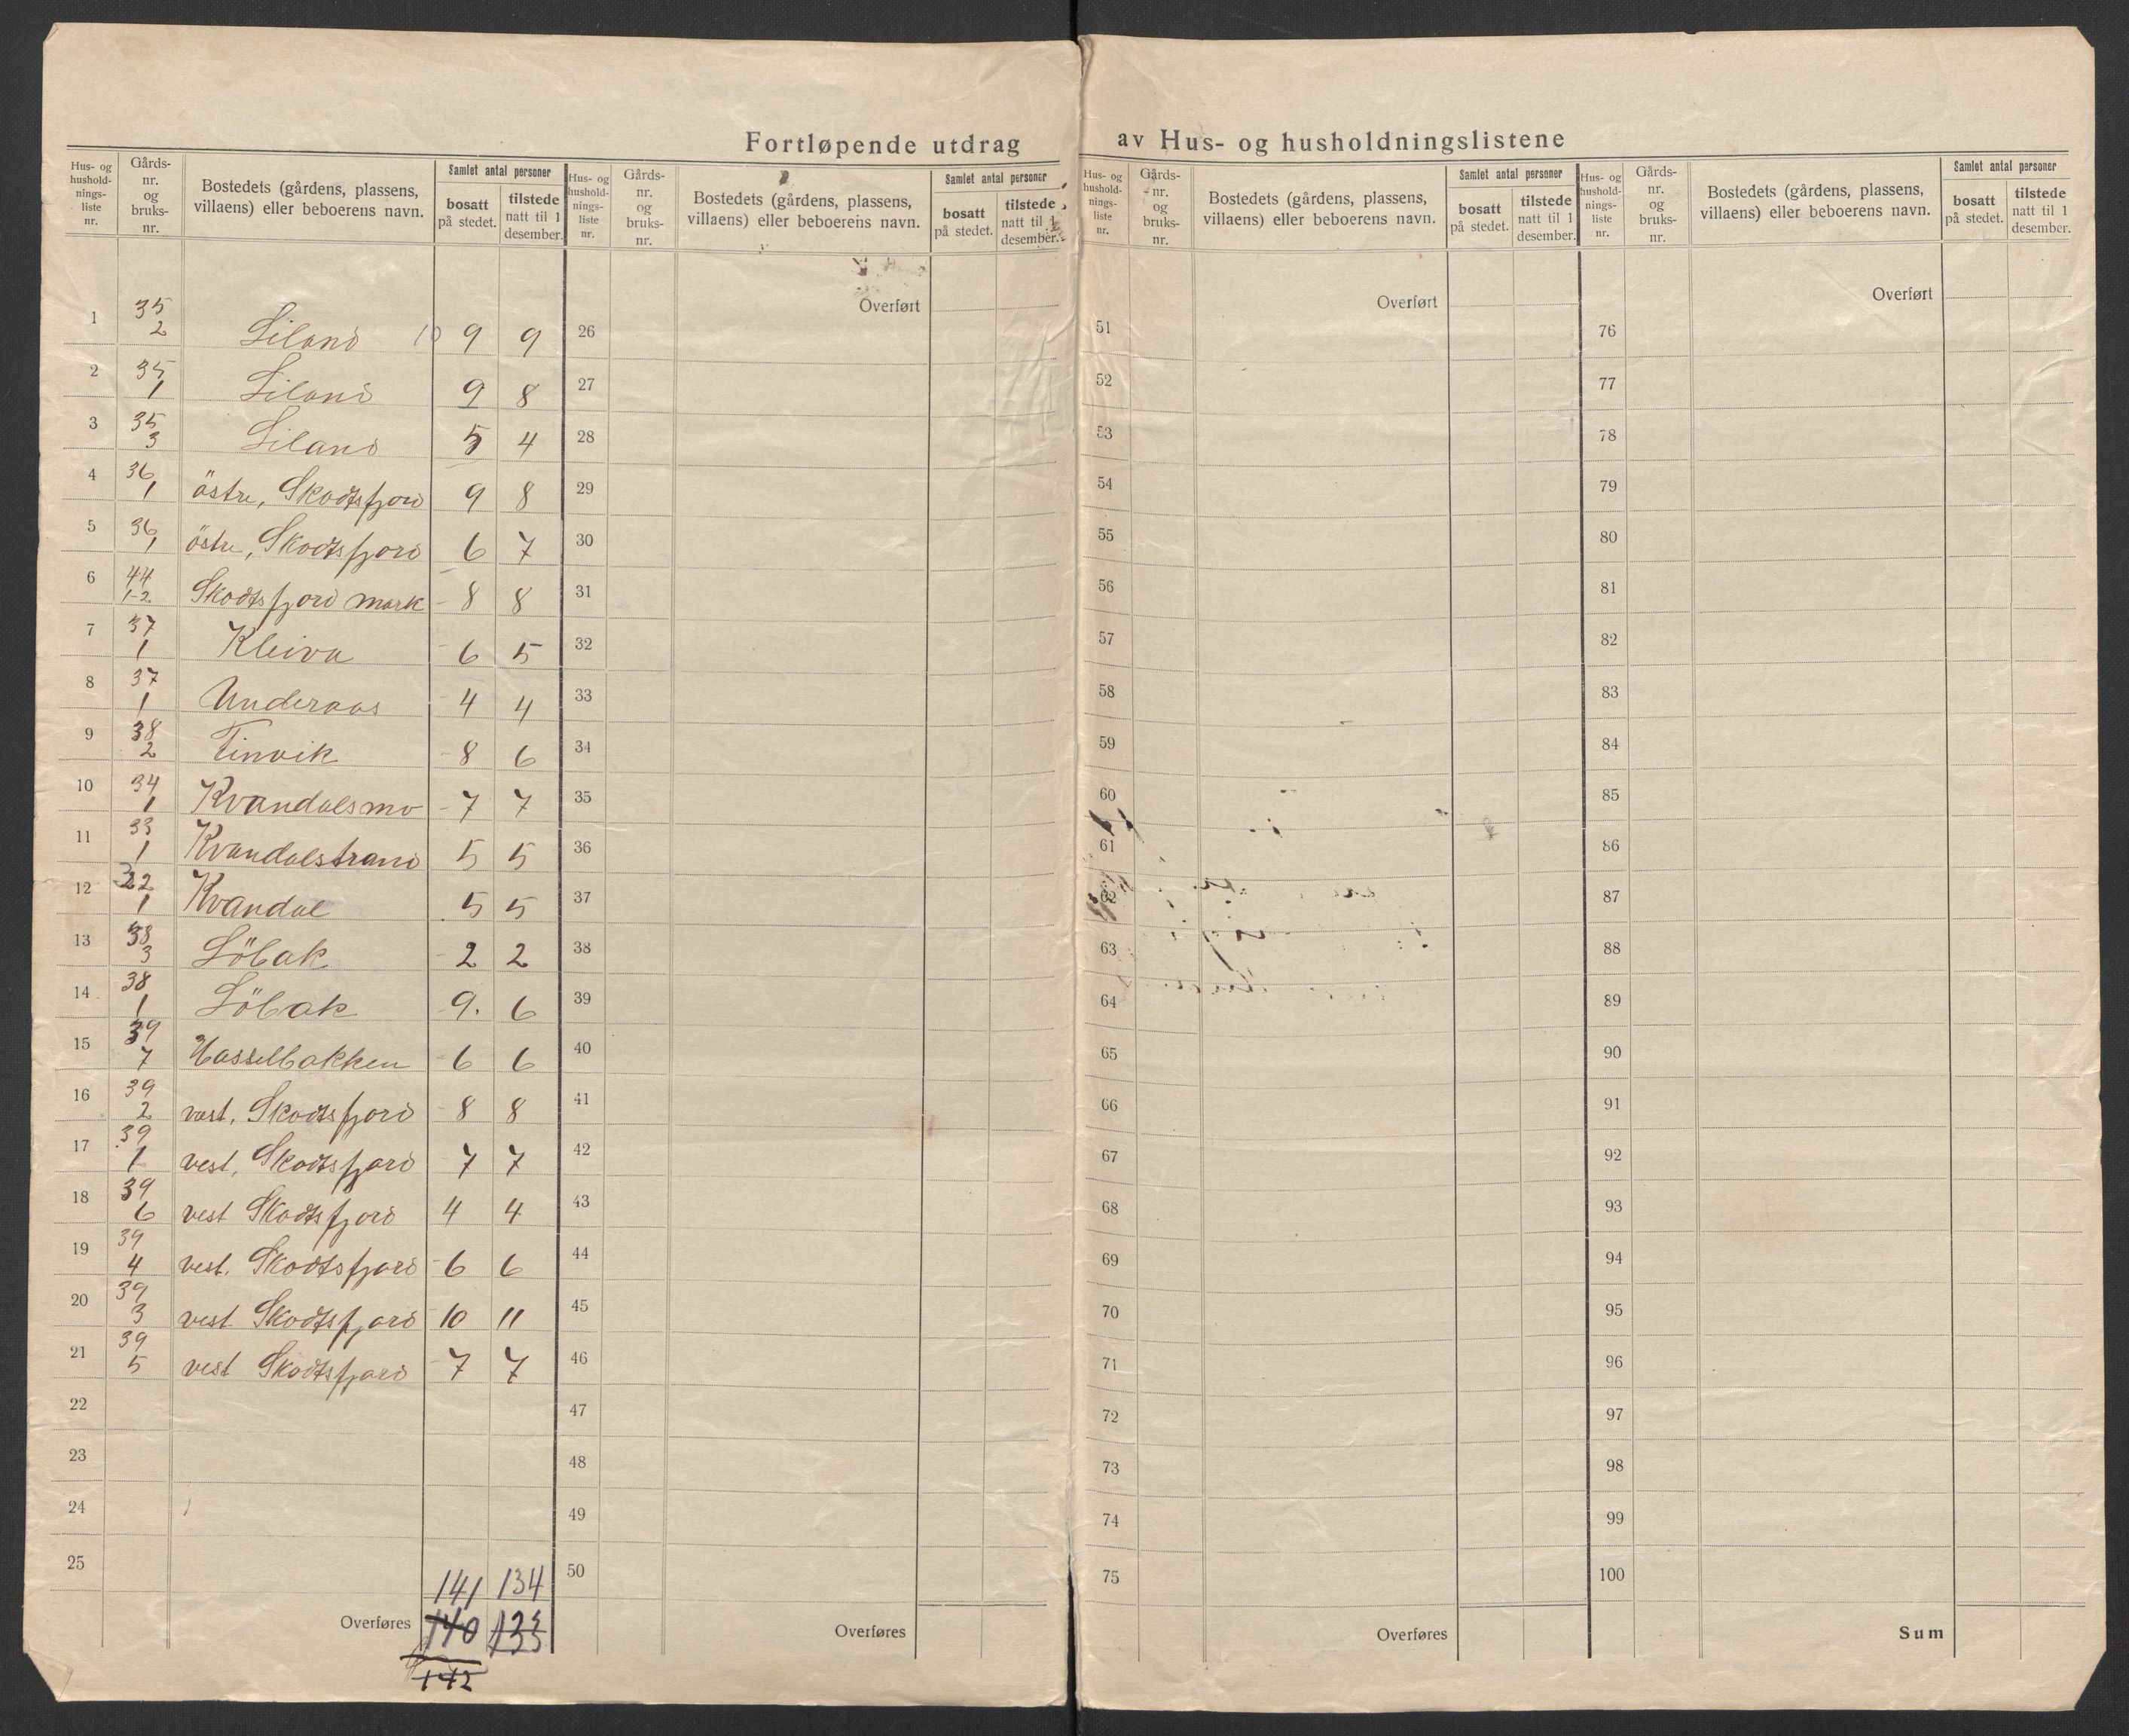 Fortløpende utdrag av Hus- og husholdningslistene
Hus- og hushold- nings- liste nr. Gårds- nr. og bruks- nr. Bostedets (gårdens, plassens, villaens) eller beboerens navn. Samlet antal personer bosatt på stedet. tilstede natt til 1 desember.
1 35 2 Liland 10 9 9
2 35 1 Liland 9 8
3 35 3 Liland 5 4
4 36 1 östre, Skodtsfjord 9 8
5 36 1 östre, Skodtsfjord 6 7
6 44 1-2 Skodtsfjord mark 8 8
7 37 1 Kleiva 6 5
8 37 1 Underaas 4 4
9 38 2 Finvik 8 6
10 34 1 Kvandalsmo 7 7
11 33 1 Kvandalstrand 5 5
12 32 1 Kvandal 5 5
13 38 3 Löbak 2 2
14 38 1 Löbak 9. 6
15 39 7 Hasselbakken 6 6
16 39 2 vest, Skodtsfjord 8 8
17 39 1 vest, Skodtsfjord 7 7
18 39 6 vest Skodtsfjord 4 4
19 39 4 vest. Skodtsfjord 6 6
20 39 3 vest Skodtsfjord 10 11
21 39 5 vest Skodtsfjord 7 7
22
23
24
25
141 134
Overføres 140
142
Hus- og hushold- nings- liste nr. Gårds- nr. og bruks- nr. Bostedets (gårdens, plassens, villaens) eller beboerens navn. Samlet antal personer bosatt på stedet. tilstede natt til 1 desember.
Overført
26
27
28
29
30
31
32
33
34
35
36
37
38
39
40
41
42
43
44
45
46
47
48
49
50
Overføres
Hus- og hushold- nings- liste nr. Gårds- nr. og bruks- nr. Bostedets (gårdens, plassens, villaens) eller beboerens navn. Samlet antal personer bosatt på stedet. tilstede natt til 1 desember.
Overført
51
52
53
54
55
56
57
58
59
60
61
62
63
64
65
66
67
68
69
70
71
72
73
74
75
Overføres
Hus- og hushold- nings- liste nr. Gårds- nr. og bruks- nr. Bostedets (gårdens, plassens, villaens) eller beboerens navn. Samlet antal personer bosatt på stedet. tilstede natt til 1 desember.
Overført
76
77
78
79
80
81
82
83
84
85
86
87
88
89
90
91
92
93
94
95
96
97
98
99
100
Sum